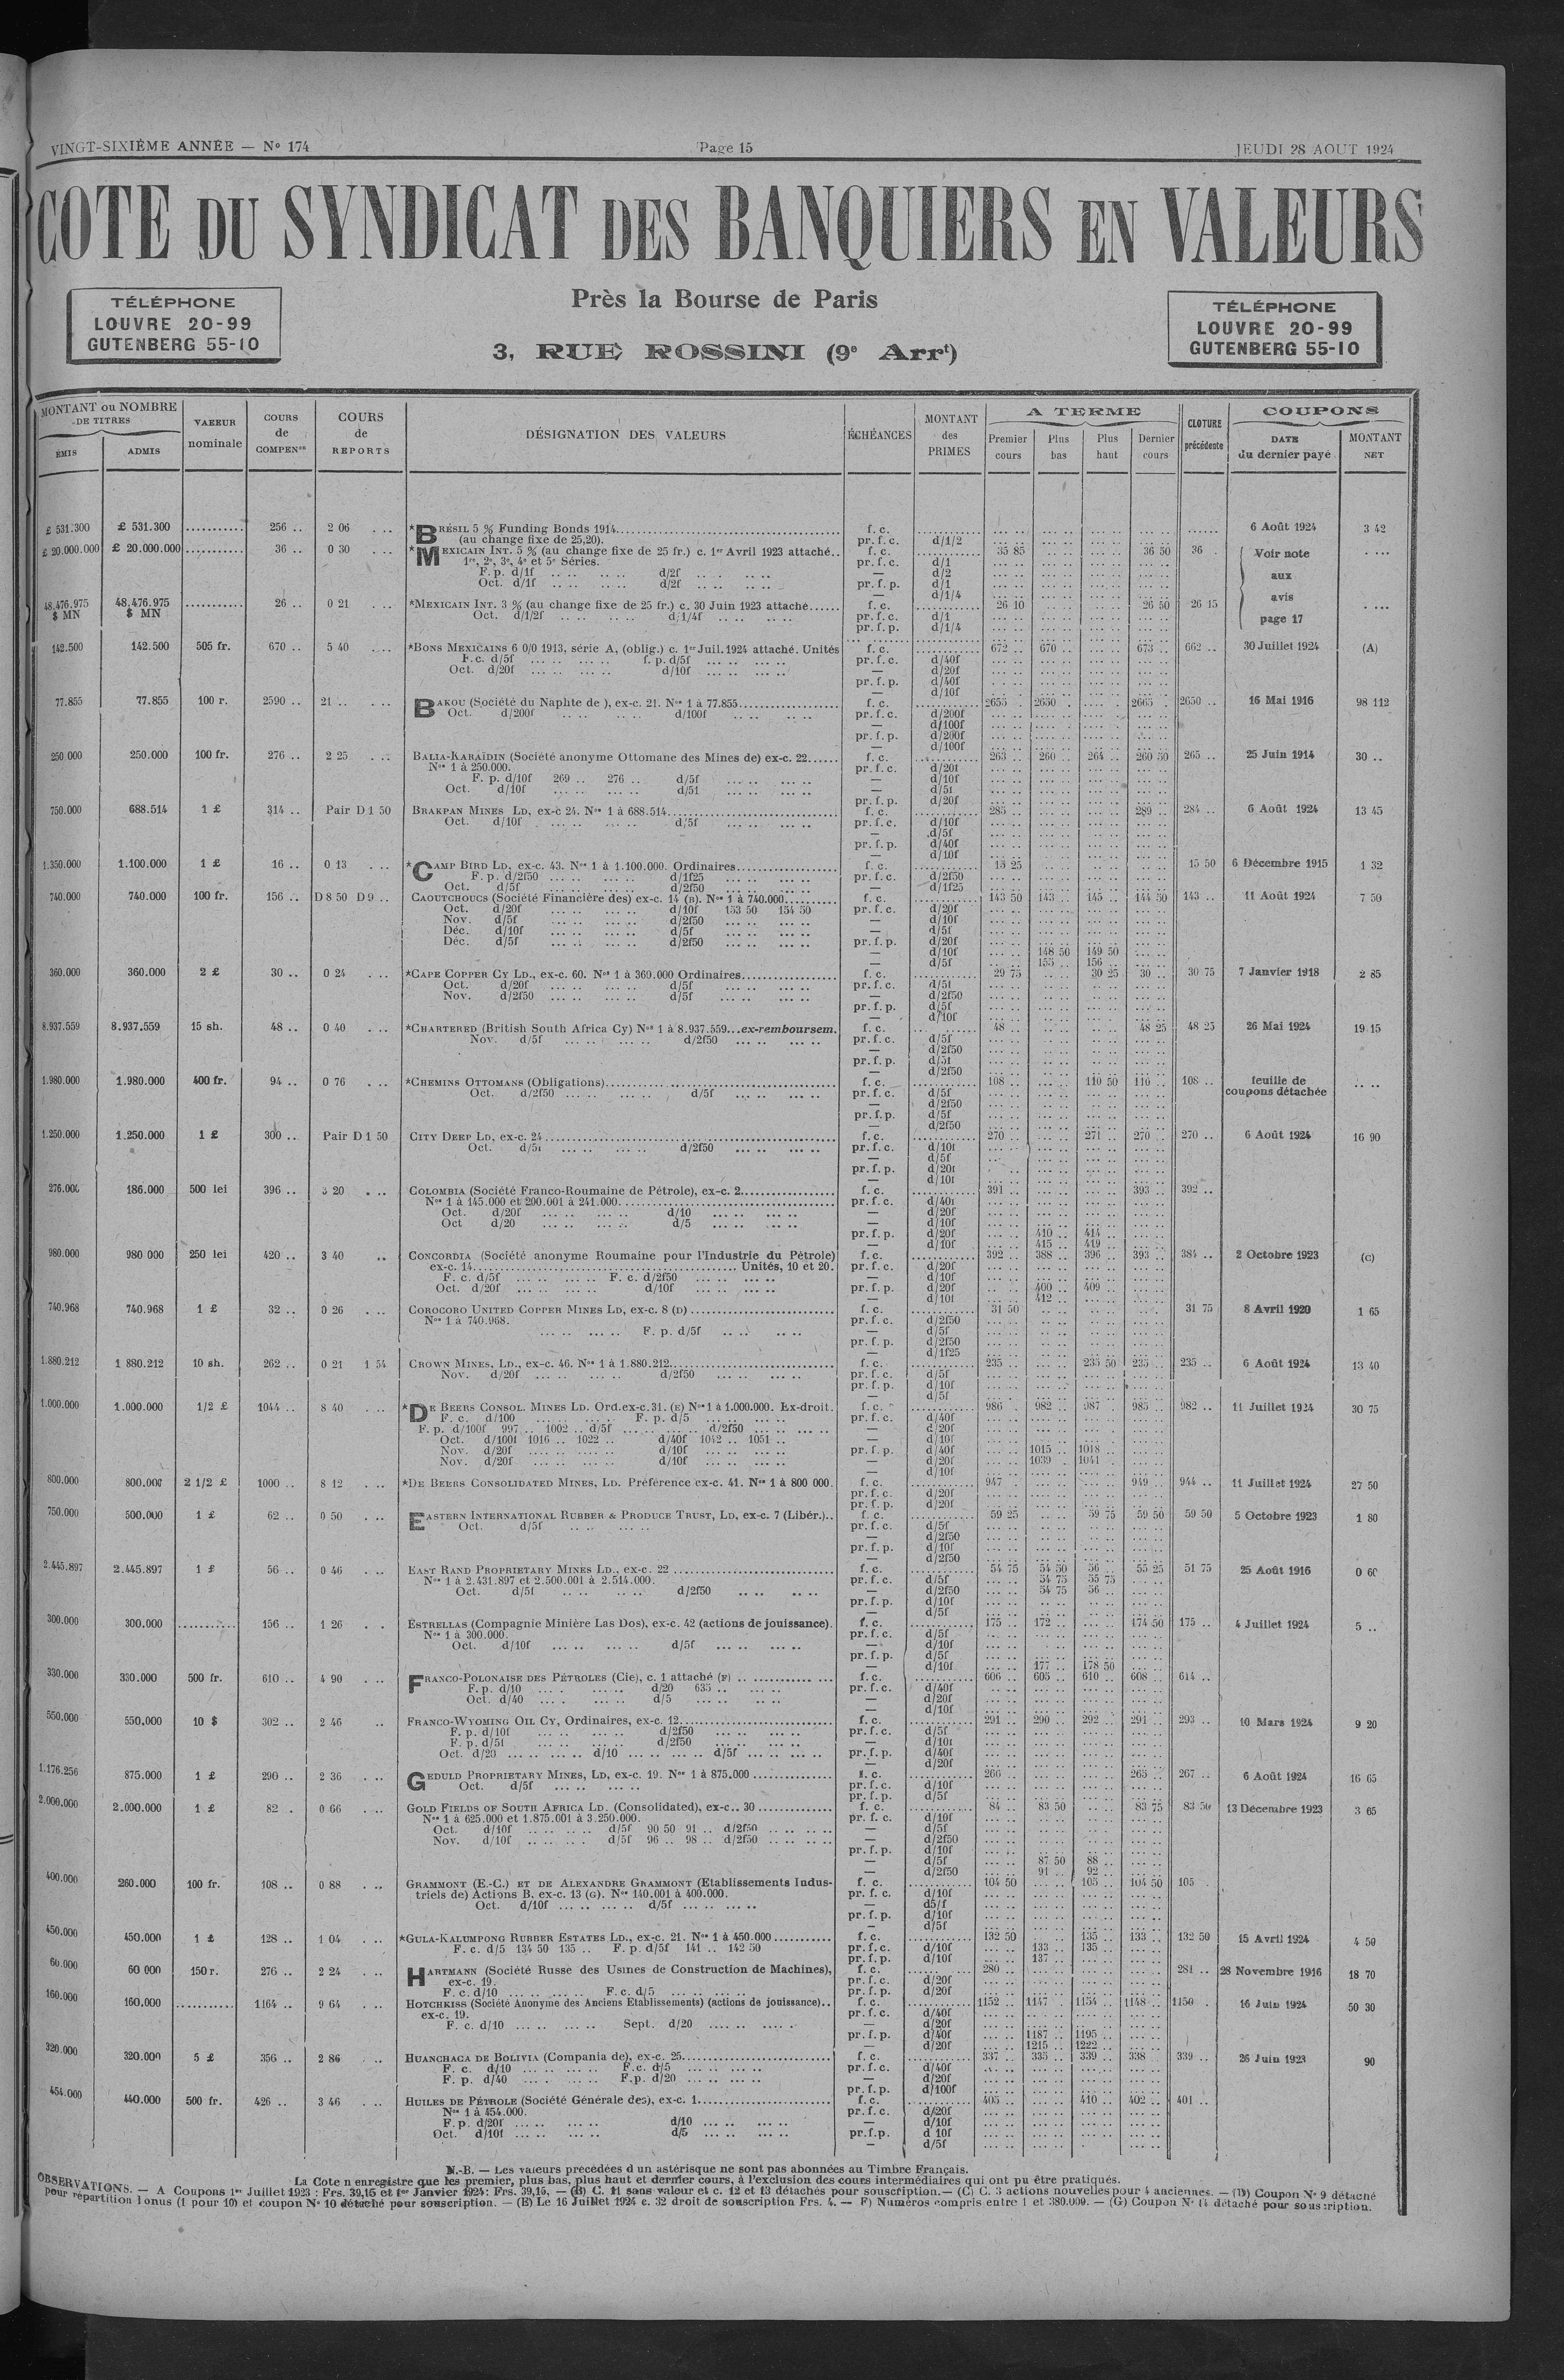 VINGT-SIXIÈME ANNÉE — N° 174
Page 15
JEUDI 28 AOUT 1924
COTE DU SYNDICAT DES BANQUIERS EN VALEURS
Près la Bourse de Paris
3, RUE ROSSINI (9e Arrt)
TÉLÉPHONE
LOUVRE 20-99
GUTENBERG 55-10
TÉLÉPHONE
LOUVRE 20-99
GUTENBERG 55-10
MONTANT ou NOMBRE DE TITRES
ÉMIS
ADMIS
VALEUR nominale
COURS de COMPENon
COURS de REPORTS
DÉSIGNATION DES VALEURS
ÉCHÉANCES
MONTANT des PRIMES
A TERME
Premier cours
Plus bas
Plus haut
Dernier cours
CLOTURE précédente
COUPONS
DATE du dernier payé
MONTANT NET
£ 531.300 £ 531.300 ........... 256 .. 2 06 . .. *BRÉSIL 5 % Funding Bonds 1914 f. c. 6 Août 1924 3 42
(au change fixe de 25,20). pr. f. c. d/1/2
£ 20.000.000 £ 20.000.000 ........... 36 .. 0 30 . .. *MEXICAIN INT. 5 % (au change fixe de 25 fr.) c. 1er Avril 1923 attaché.. f. c. 35 85 36 50 36 . Voir note aux avis page 17
1re, 2e, 3e, 4e et 5e Séries. pr. f. c. d/1
F. p. d/1f d/2f — d/2
Oct. d/1f d/2f pr. f. p. d/1
— d/1/4
48,476.975 $ MN 48,476.975 $ MN ........... 26 .. 0 21 . .. *MEXICAIN INT. 3 % (au change fixe de 25 fr.) c. 30 Juin 1923 attaché...... f. c. 26 10 26 50 26 15
Oct. d/1/2f d/1/4f pr. f. c. d/1
pr. f. p. d/1/4
142.500 142.500 505 fr. 670 .. 5 40 *BONS MEXICAINS 6 0/0 1913, série A, (oblig.) c. 1er Juil. 1924 attaché. Unités f. c. 672 .. 670 .. 673 .. 662 .. 30 Juillet 1924 (A)
F.c. d/5f f. p. d/5f pr. f. c. d/40f
Oct. d/20f d/10f — d/20f
pr. f. p. d/40f
— d/10f
77.855 77.855 100 r. 2590 .. 21 .. *BAKOU (Société du Naphte de ), ex-c. 21. Nos 1 à 77.855 f. c. 2655 . 2650 . 2665 . 2650 .. 16 Mai 1916 98 112
Oct. d/200f d/100f pr. f. c. d/200f
— d/100f
pr. f. p. d/200f
— d/100f
250.000 250.000 100 fr. 276 .. 2 25 BALIA-KARAÏDIN (Société anonyme Ottomane des Mines de) ex-c. 22...... f. c. 263 .. 260 .. 264 .. 260 50 265 .. 25 Juin 1914 30 ..
Nos 1 à 250.000. pr. f. c. d/20f
F. p. d/10f 269 .. 276 .. d/5f — d/10f
Oct. d/10f d/5f — d/5f
pr. f. p. d/20f
750.000 688.514 1 £ 314 .. Pair D 1 50 BRAKPAN MINES LD, ex-c 24. Nos 1 à 688.514 f. c. 285 .. 289 .. 284 .. 6 Août 1924 13 45
Oct. d/10f d/5f pr. f. c. d/10f
— d/5f
pr. f. p. d/40f
— d/10f
1.350.000 1.100.000 1 £ 16 .. 0 13 *CAMP BIRD LD, ex-c. 43. Nos 1 à 1.100.000. Ordinaires f. c. 15 25 15 50 6 Décembre 1915 1 32
F. p. d/2f50 d/1f25 pr. f. c. d/2f50
Oct. d/5f d/2f50 — d/1f25
740.000 740.000 100 fr. 156 .. D 8 50 D 9 .. CAOUTCHOUCS (Société Financière des) ex-c. 14 (B). Nos 1 à 740.000 f. c. 143 50 143 .. 145 .. 144 50 143 .. 11 Août 1924 7 50
Oct. d/20f d/10f 153 50 154 50 pr. f. c. d/20f
Nov. d/5f d/2f50 — d/10f
Déc. d/10f d/5f — d/5f
Déc. d/5f d/2f50 pr. f. p. d/20f
— d/10f 148 50 149 50
— d/5f 155 .. 156 ..
360.000 360.000 2 £ 30 .. 0 24 *CAPE COPPER CY LD., ex-c. 60. Nos 1 à 360.000 Ordinaires f. c. 29 75 30 25 30 .. 30 75 7 Janvier 1918 2 85
Oct. d/20f d/5f pr. f. c. d/5f
Nov. d/2f50 d/5f — d/2f50
pr. f. p. d/5f
— d/10f
8.937.559 8.937.559 15 sh. 48 .. 0 40 *CHARTERED (British South Africa Cy) Nos 1 à 8.937.559...ex-remboursem. f. c. 48 .. 48 25 48 25 26 Mai 1924 19 15
Nov. d/5f d/2f50 pr. f. c. d/5f
— d/2f50
pr. f. p. d/5f
— d/2f50
1.980.000 1.980.000 400 fr. 94 .. 0 76 *CHEMINS OTTOMANS (Obligations) f. c. 108 .. 110 50 110 .. 108 .. feuille de coupons détachée
Oct. d/2f50 d/5f pr. f. c. d/5f
— d/2f50
pr. f. p. d/5f
— d/2f50
1.250.000 1.250.000 1 £ 300 .. Pair D 1 50 CITY DEEP LD, ex-c. 24 f. c. 270 .. 271 .. 270 .. 270 .. 6 Août 1924 16 90
Oct. d/5f d/2f50 pr. f. c. d/10f
— d/5f
pr. f. p. d/20f
— d/10f
276.000 186.000 500 lei 396 .. 3 20 COLOMBIA (Société Franco-Roumaine de Pétrole), ex-c. 2 f. c. 391 .. 393 .. 392 ..
Nos 1 à 145.000 et 200.001 à 241.000 pr. f. c. d/40f
Oct. d/20f d/10 — d/20f
Oct d/20 d/5 — d/10f
pr. f. p. d/20f 410 .. 414 ..
— d/10f 415 .. 419 ..
980.000 980 000 250 lei 420 .. 3 40 CONCORDIA (Société anonyme Roumaine pour l'Industrie du Pétrole) f. c. 392 .. 388 .. 396 .. 393 .. 384 .. 2 Octobre 1923 (C)
ex-c. 14 Unités, 10 et 20. pr. f. c. d/20f
F. c. d/5f F. c. d/2f50 — d/10f
Oct. d/20f d/10f pr. f. p. d/20f 400 .. 409 ..
— d/10f 412 ..
740.968 740.968 1 £ 32 .. 0 26 COROCORO UNITED COPPER MINES LD, ex-c. 8 (D) f. c. 31 50 31 75 8 Avril 1920 1 65
Nos 1 à 740.968. pr. f. c. d/2f50
F. p. d/5f — d/5f
pr. f. p. d/2f50
— d/1f25
1.880.212 1 880.212 10 sh. 262 .. 0 21 1 54 CROWN MINES, LD., ex-c. 46. Nos 1 à 1.880.212 f. c. 235 .. 235 50 235 .. 235 .. 6 Août 1924 13 40
Nov. d/20f d/2f50 pr. f. c. d/5f
pr. f. p. d/10f
— d/5f
1.000.000 1.000.000 1/2 £ 1044 .. 8 40 *DE BEERS CONSOL. MINES LD. Ord. ex-c. 31. (E) Nos 1 à 1.000.000. Ex-droit. f. c. 986 . 982 .. 987 .. 985 .. 982 .. 11 Juillet 1924 30 75
F. c. d/100 F. p. d/5 pr. f. c. d/40f
F. p. d/100f 997 .. 1002 .. d/5f d/2f50 — d/20f
Oct. d/100f 1016 .. 1022 .. d/40f 1042 .. 1051 .. — d/10f
Nov. d/20f d/10f pr. f. p. d/40f 1015 .. 1018 ..
Nov. d/20f d/10f — d/20f 1039 . 1041 ..
— d/10f
800.000 800.000 2 1/2 £ 1000 .. 8 12 *DE BEERS CONSOLIDATED MINES, LD. Préférence ex-c. 41. Nos 1 à 800 000. f. c. 947 .. 949 .. 944 .. 11 Juillet 1924 27 50
pr. f. c. d/20f
pr. f. p. d/20f
750.000 500.000 1 £ 62 .. 0 50 EASTERN INTERNATIONAL RUBBER & PRODUCE TRUST, LD, ex-c. 7 (Libér.).. f. c. 59 25 59 75 59 50 59 50 5 Octobre 1923 1 80
Oct. d/5f pr. f. c. d/5f
— d/2f50
pr. f. p. d/10f
— d/2f50
2.445.897 2.445.897 1 £ 56 .. 0 46 EAST RAND PROPRIETARY MINES LD., ex-c. 22 f. c. 54 75 54 50 56 .. 55 25 51 75 25 Août 1916 0 60
Nos 1 à 2.431.897 et 2.500.001 à 2.514.000. pr. f. c. d/5f 54 75 55 75
Oct. d/5f d/2f50 — d/2f50 54 75 56 ..
pr. f. p. d/10f
— d/5f
300.000 300.000 ........... 156 .. 1 26 ESTRELLAS (Compagnie Minière Las Dos), ex-c. 42 (actions de jouissance). f. c. 175 .. 172 .. 174 50 175 .. 4 Juillet 1924 5 ..
Nos 1 à 300.000. pr. f. c. d/5f
Oct. d/10f d/5f — d/10f
pr. f. p. d/5f
— d/10f 177 .. 178 50
330.000 330.000 500 fr. 610 .. 4 90 FRANCO-POLONAISE DES PÉTROLES (Cie), c. 1 attaché (F) f. c. 606 .. 605 .. 610 .. 608 .. 614 ..
F. p. d/10 d/20 635 .. pr. f. c. d/40f
Oct. d/40 d/5 — d/20f
— d/10f
550.000 550,000 10 $ 302 .. 2 46 FRANCO-WYOMING OIL CY, Ordinaires, ex-c. 12 f. c. 291 .. 290 .. 292 .. 291 .. 293 .. 10 Mars 1924 9 20
F. p. d/10f d/2f50 pr. f. c. d/5f
F. p. d/5f d/2f50 — d/10f
Oct. d/20 d/10 d/5f pr. f. p. d/40f
— d/20f
1.176.256 875.000 1 £ 290 .. 2 36 GEDULD PROPRIETARY MINES, LD, ex-c. 19. Nos 1 à 875.000 f. c. 266 .. 265 .. 267 .. 6 Août 1924 16 65
Oct. d/5f pr. f. c. d/10f
pr. f. p. d/5f
2.000.000 2.000.000 1 £ 82 . 0 66 GOLD FIELDS OF SOUTH AFRICA LD. (Consolidated), ex-c.. 30 f. c. 84 .. 83 50 83 75 83 50 13 Décembre 1923 3 65
Nos 1 à 625.000 et 1.875.001 à 3.250.000. pr. f. c. d/10f
Oct. d/10f d/5f 90 50 91 .. d/2f50 — d/5f
Nov. d/10f d/5f 96 .. 98 .. d/2f50 — d/2f50
pr. f. p. d/10f
— d/5f 87 50 88 ..
— d/2f50 91 .. 92 ..
400.000 260.000 100 fr. 108 .. 0 88 GRAMMONT (E.-C.) ET DE ALEXANDRE GRAMMONT (Etablissements Indus- f. c. 104 50 105 .. 104 50 105 .
triels de) Actions B. ex-c. 13 (G). Nos 140.001 à 400.000. pr. f. c. d/10f
Oct. d/10f d/5f — d5/f
pr. f. p. d/10f
— d/5f
450.000 450.000 1 £ 128 .. 1 04 *GULA-KALUMPONG RUBBER ESTATES LD., ex-c. 21. Nos 1 à 450.000 f. c. 132 50 135 .. 133 .. 132 50 15 Avril 1924 4 50
F. c. d/5 134 50 135 .. F. p. d/5f 141 .. 142 50 pr. f. c. d/10f 133 .. 135 ..
pr. f. p. d/10f 137 ..
60.000 60 000 150 r. 276 .. 2 24 HARTMANN (Société Russe des Usines de Construction de Machines), f. c. 280 .. 281 .. 28 Novembre 1916 18 70
ex-c. 19. pr. f. c. d/20f
F. c. d/10 F. c. d/5 pr. f. p. d/20f
160.000 160.000 ........... 1164 .. 9 64 HOTCHKISS (Société Anonyme des Anciens Etablissements) (actions de jouissance).. f. c. 1152 .. 1147 .. 1154 .. 1148 .. 1150 . 16 Juin 1924 50 30
ex-c. 19. pr. f. c. d/40f
F. c. d/10 Sept. d/20 — d/20f
pr. f. p. d/40f 1187 .. 1195 ..
— d/20f 1215 .. 1222 ..
320.000 320.000 5 £ 356 .. 2 86 HUANCHACA DE BOLIVIA (Compania de), ex-c. 25 f. c. 337 .. 335 .. 339 .. 338 .. 339 .. 26 Juin 1923 90
F. c. d/10 F.c. d/5 pr. f. c. d/40f
F. p. d/40 F.p. d/20 — d/20f
pr. f. p. d/100f
454.000 440.000 500 fr. 426 .. 3 46 HUILES DE PÉTROLE (Société Générale des), ex-c. 1 f. c. 405 .. 410 .. 402 .. 401 ..
Nos 1 à 454.000. pr. f. c. d/20f
F. p. d/20f d/10 — d/10f
Oct. d/10f d/5 pr.f.p. d 10f
— d/5f
N.-B. — Les valeurs précédées d un astérisque ne sont pas abonnées au Timbre Français.
La Cote n enregistre que les premier, plus bas, plus haut et dernier cours, à l'exclusion des cours intermédiaires qui ont pu être pratiqués.
OBSERVATIONS. — A Coupons 1er Juillet 1923 : Frs. 39,15 et 1er Janvier 1924: Frs. 39,15. — (B) C. 11 sans valeur et c. 12 et 13 détachés pour souscription. — (C) C. 3 actions nouvelles pour 4 anciennes. — (D) Coupon N° 9 détaché
pour répartition bonus (1 pour 10) et coupon N° 10 détaché pour souscription. — (E) Le 16 Juillet 1924 c. 32 droit de souscription Frs. 4. — F) Numéros compris entre 1 et 380.000. — (G) Coupon N° 14 détaché pour souscription.